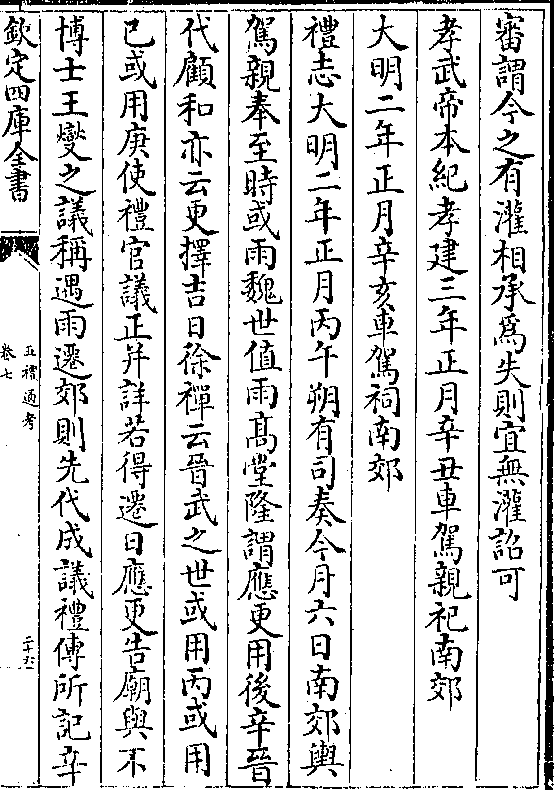 審謂今之有灌相承為失則宜無灌詔可
孝武帝本紀孝建三年正月辛丑車駕親祀南郊
大明二年正月辛亥車駕祠南郊
禮志大明二年正月丙午朔有司奏今月六日南郊輿
駕親奉至時或雨魏世值雨髙堂隆謂應更用後辛晉
代顧和亦云更擇吉日徐禪云晉武之世或用丙或用
已或用庚使禮官議正并詳若得遷日應更告廟與不
博士王燮之議稱遇雨遷郊則先代成議禮傳所記辛
欽定四庫全書
五禮通考
卷七